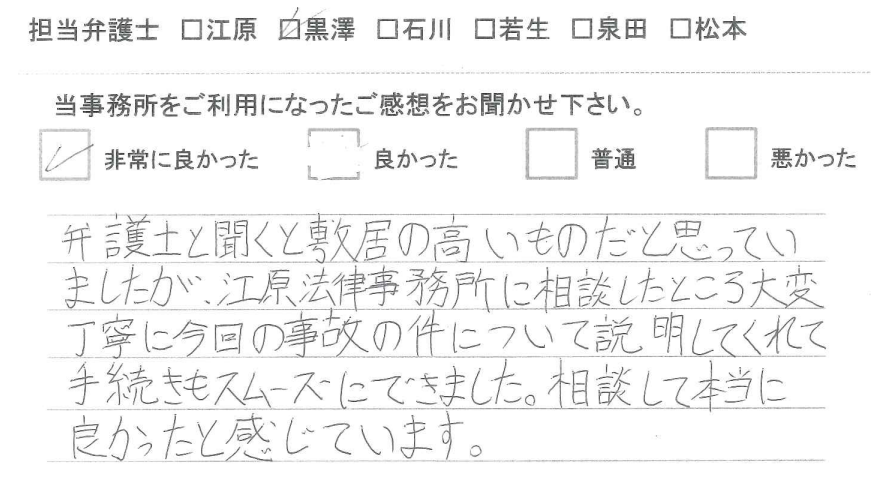 担当弁護士 □江原 ☑黒澤 □石川 □若生 □泉田 □松本
当事務所をご利用になったご感想をお聞かせ下さい。
☑ 非常に良かった □ 良かった □ 普通 □ 悪かった
弁護士と聞くと敷居の高いものだと思ってい
ましたが、江原法律事務所に相談したところ大変
丁寧に今回の事故の件について説明してくれて
手続きもスムーズにできました。相談して本当に
良かったと感じています。